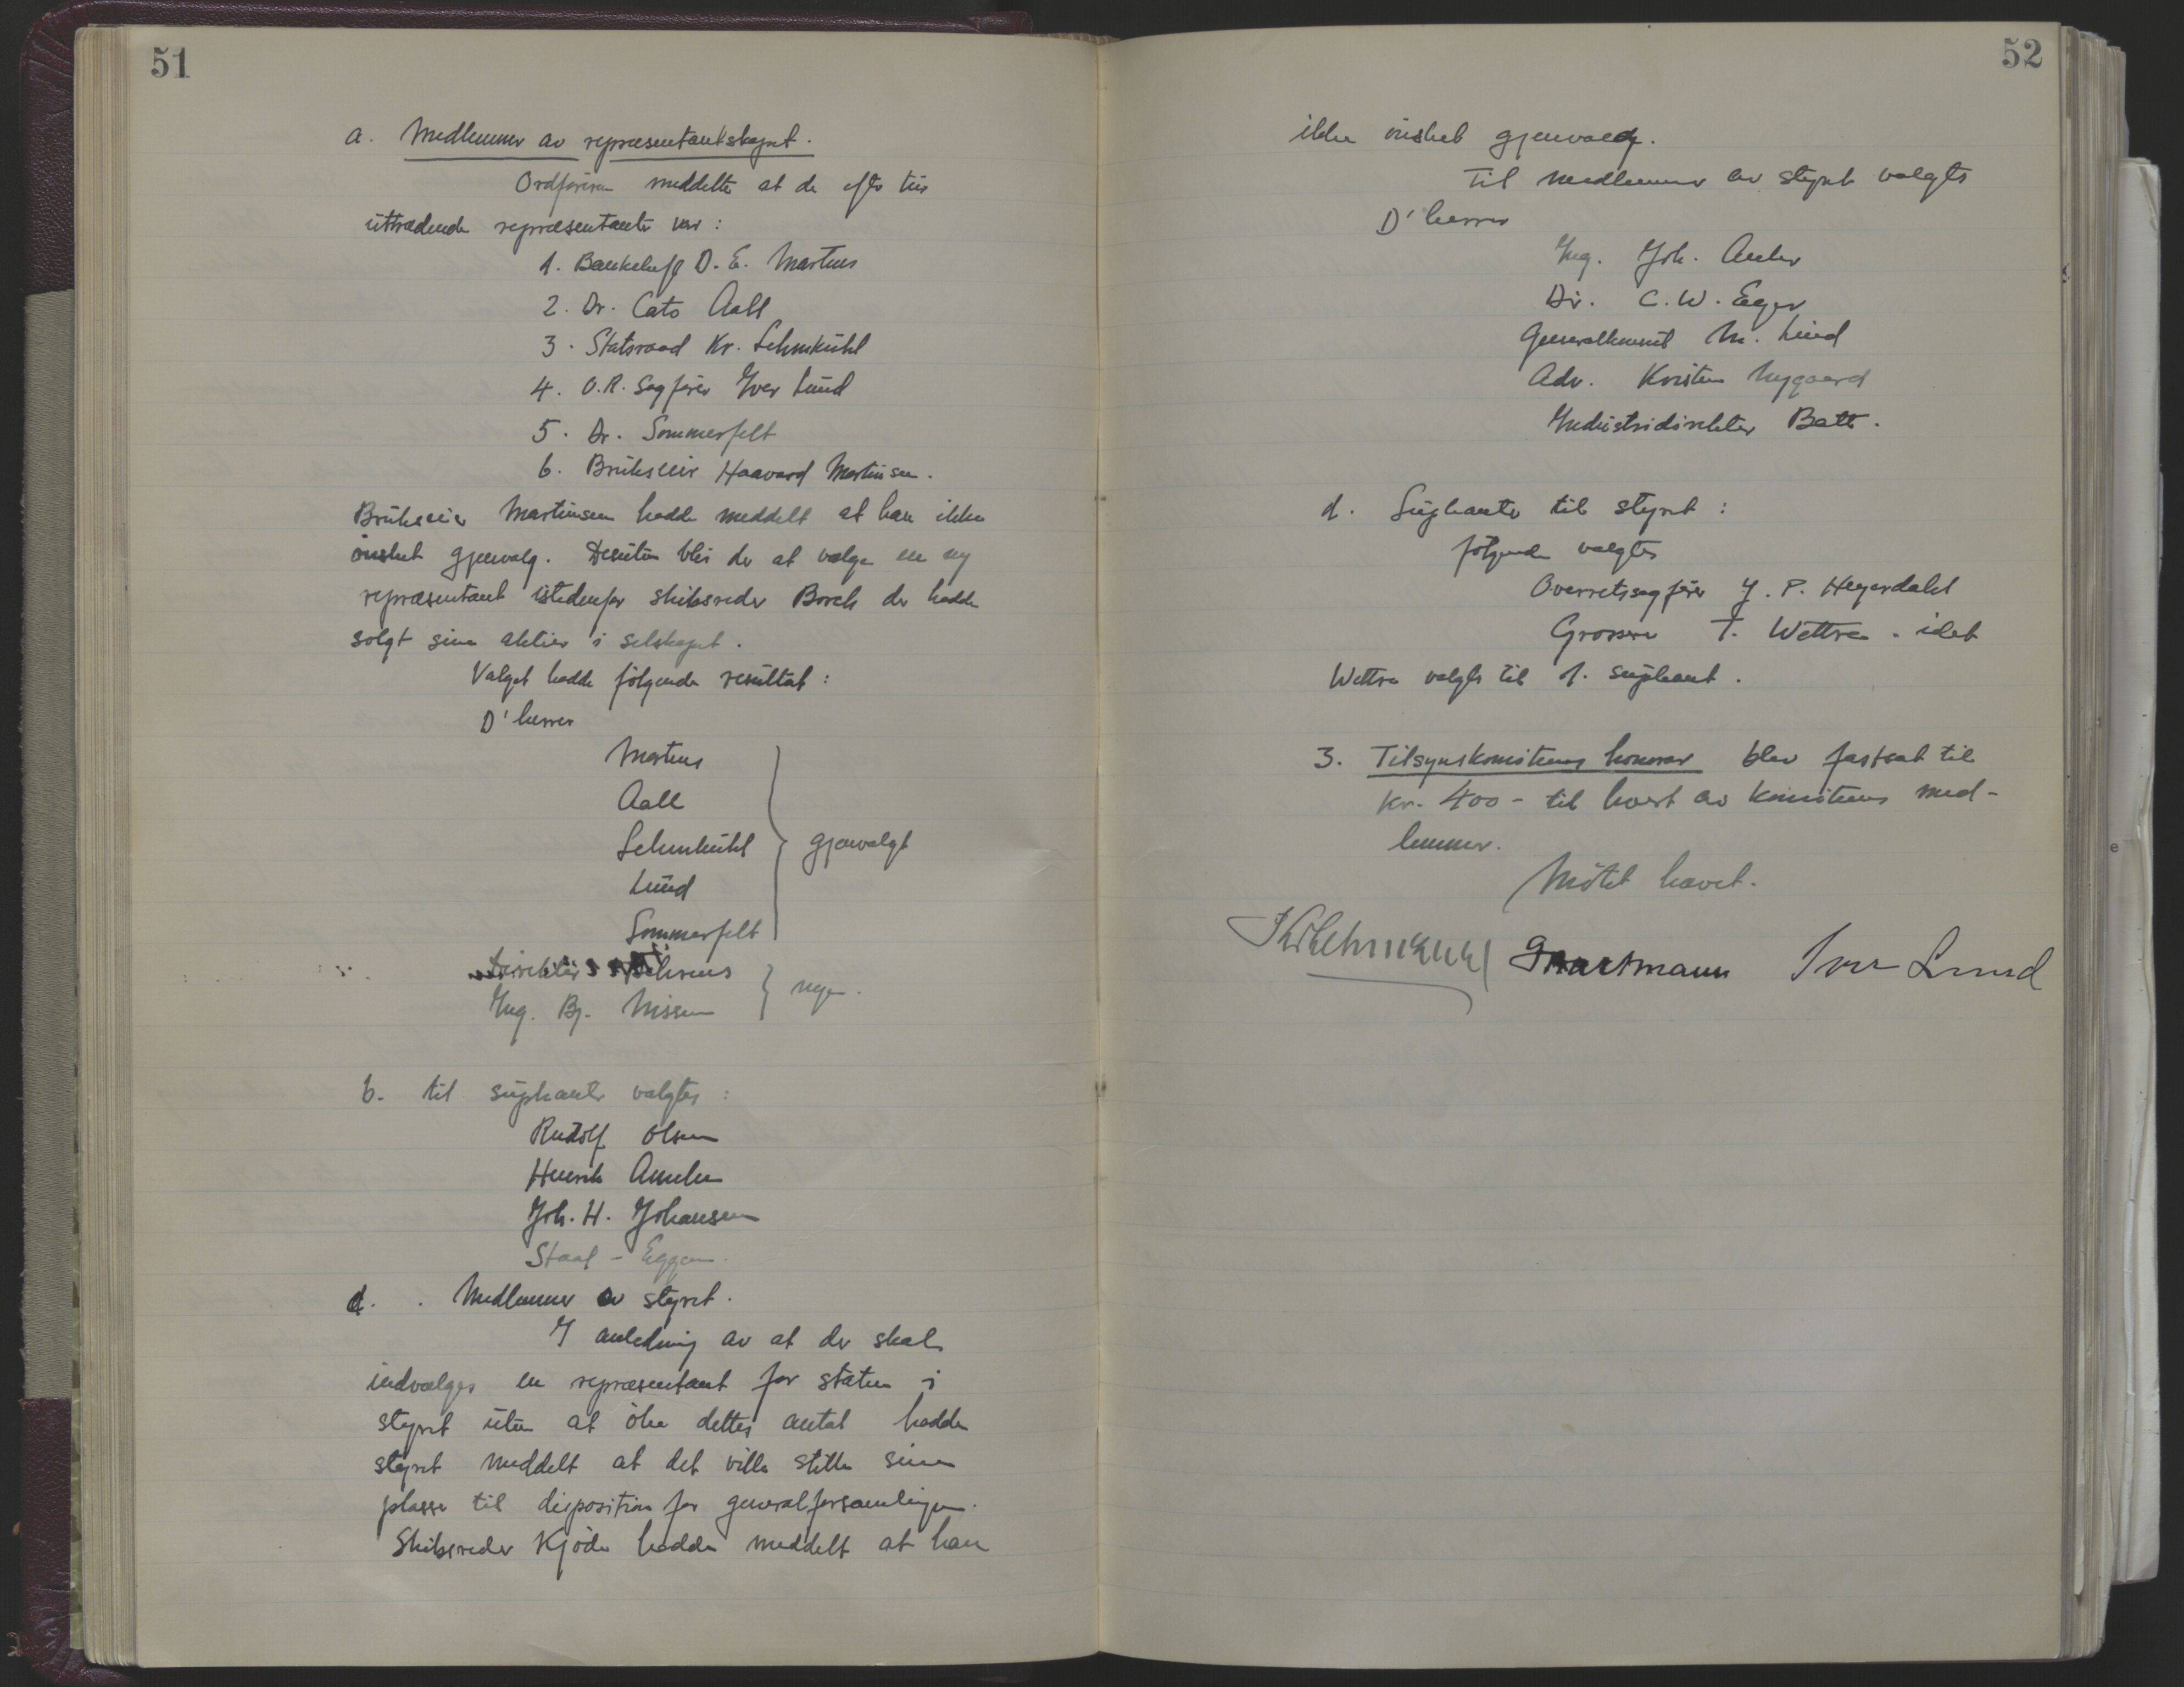 51
a. Medlemmer av repræsentantskapet.
Ordføreren meddelte at de efter tur
uttrædende repræsentanter var:
1. Bankchef D. E. Martens
2. Dr. Cato Aall
3. Statsraad Kr. Lehmkühl
4. O.R. Sagfører Iver Lund
5. Dr. Sommerfelt
6. Brukseier Haavard Martinsen.
Brukseier Martinsen hadde meddelt at han ikke
ønsket gjenvalg. Desuten blir der at vælge en ny
repræsentant istedenfor skibsreder Borch der hadde
solgt sine aktier i selskapet.
Valget hadde følgende resultat:
D'herrer
Martens
Aall
Lehmkühl
Lund
Sommerfelt
gjenvalgt
Direktør Behrens
Ing. Bj. Nissen
nye.
b. til suppleanter valgtes:
Rudolf Olsen
Henrik Ameln
Joh. H. Johansen
Staal - Eggen
d. Medlemmer av styret.
I anledning av at der skal
indvælges en repræsentant for staten i
styret uten at øke dettes antal hadde
styret meddelt at det ville stille sine
plasse til disposition for generalforsamlingen.
Skibsreder Kjøde hadde meddelt at han
52
ikke ønsket gjenvalg.
Til medlemmer av styret valgtes
D'herrer
Ing. Joh.
Dir. C. W. Eger
Generalkonsul M. Lund
Adv. Kristen Nygaard
Industridirektør Batt.
d. Supleanter til styret:
følgende valgtes
Overretssagfører J. P. Heyerdahl
Grosserer T. Wettre. idet
Wettre valgtes til 1. supleant.
3. Tilsynskomiteens honorar blev fastsat til
kr. 400 - til hvert av komiteens med-
lemmer.
Møtet hævet.
Kr Lehmkuhl Hartmann Iver Lund